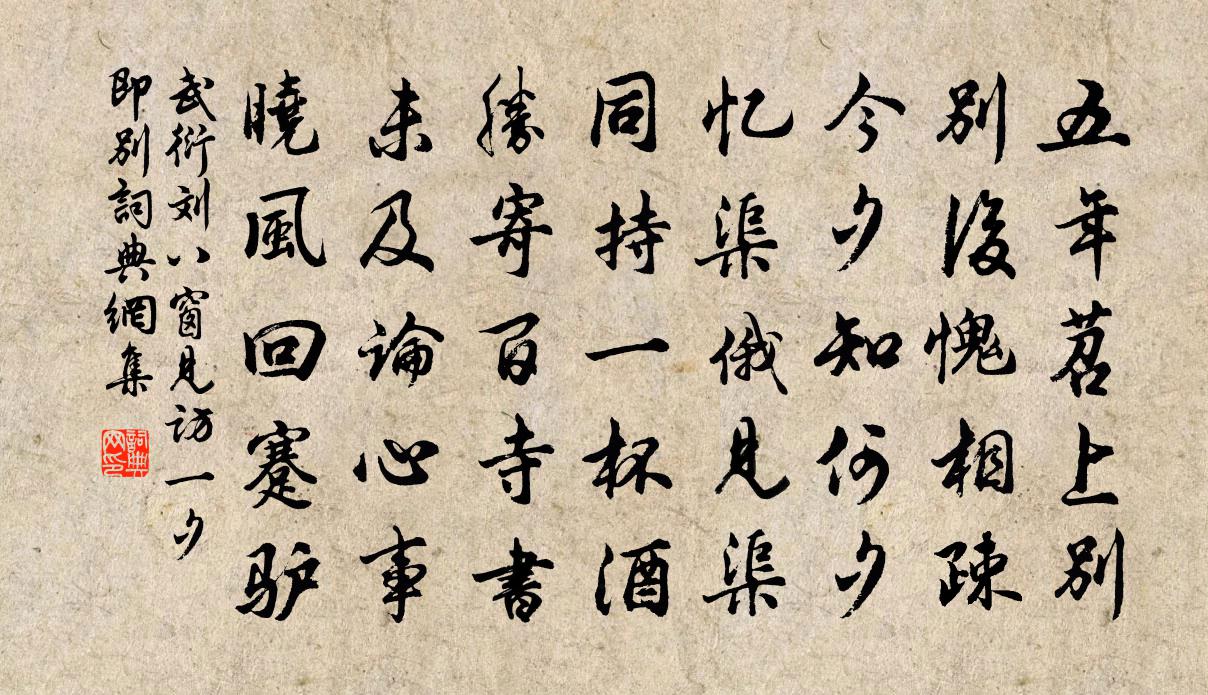 五年苕上别
别後愧相疎
今夕知何夕
忆渠俄見渠
同持一杯酒
勝寄百寺書
未及論心事
曉風回蹇驴
武衍刘八窗見訪一夕
即别詞典網集
詞典网印